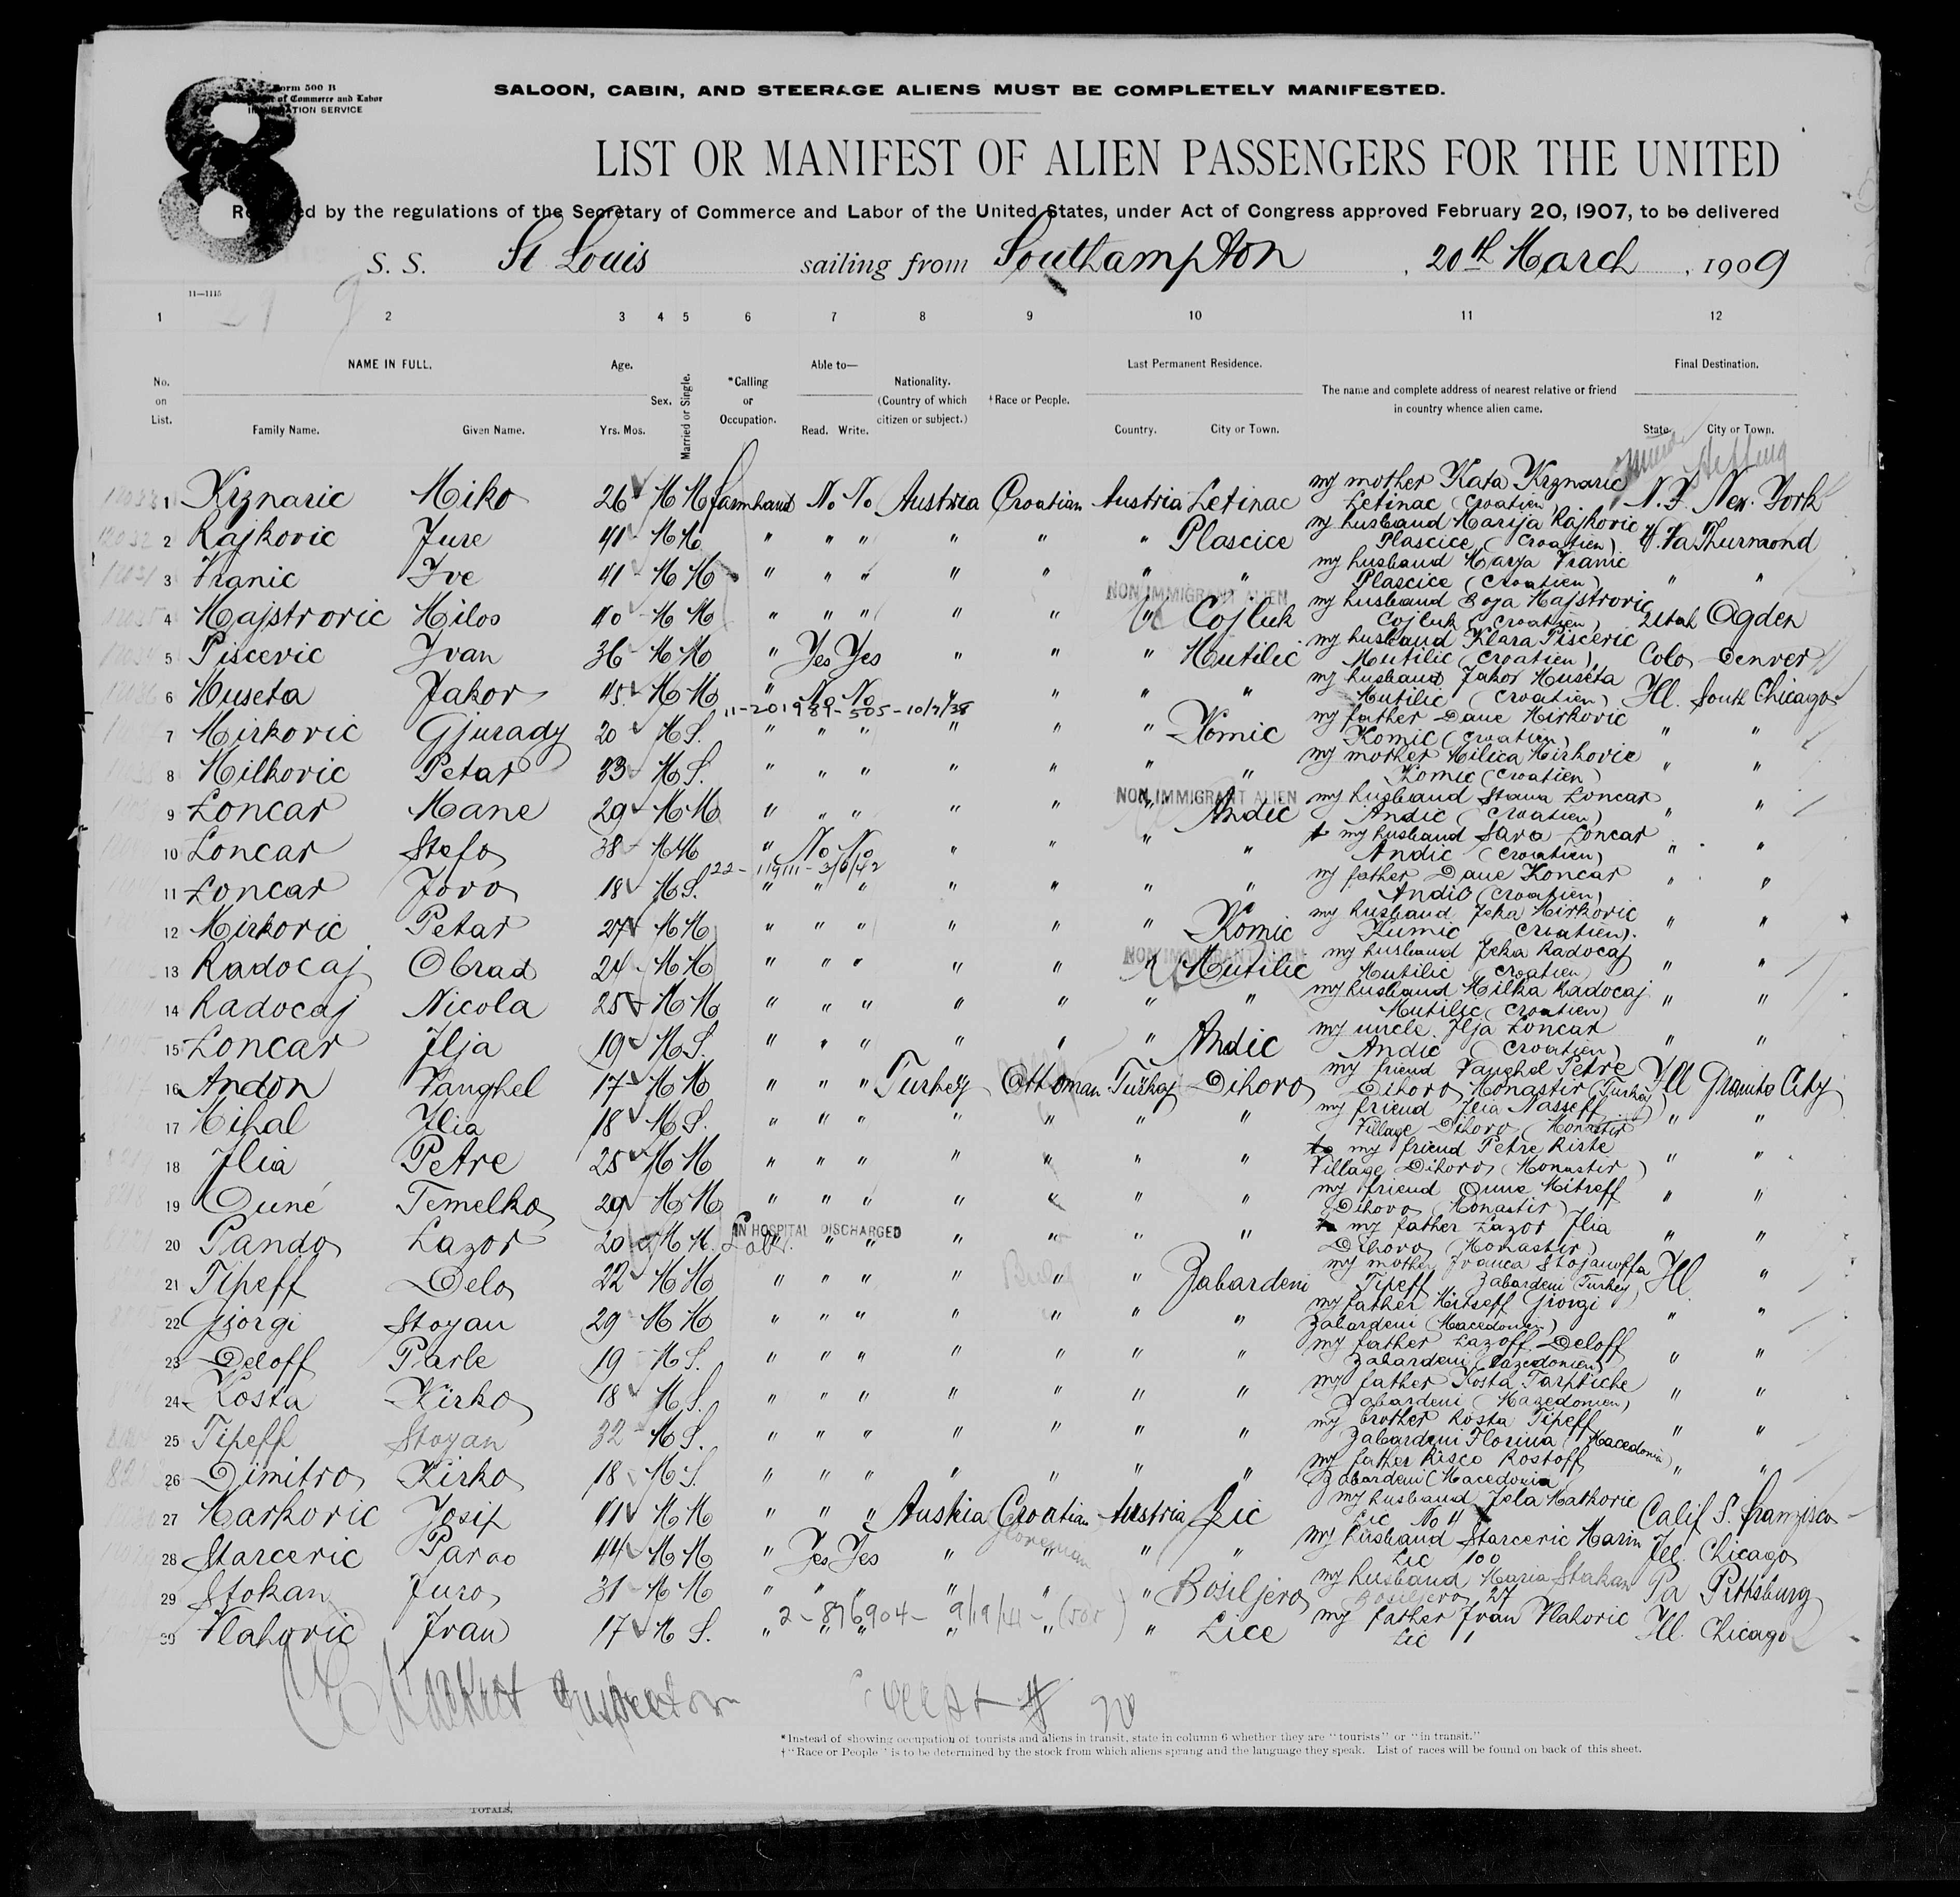 8
Form 500 B
of Commerce and Labor
IMMIGRATION SERVICE
SALOON, CABIN, AND STEERAGE ALIENS MUST BE COMPLETELY MANIFESTED.
LIST OR MANIFEST OF ALIEN PASSENGERS FOR THE UNITED
Required by the regulations of the Secretary of Commerce and Labor of the United States, under Act of Congress approved February 20, 1907, to be delivered
S. S. St Louis sailing from Southampton, 20th March, 1909
11—1115
1 2 3 4 5 6 7 8 9 10 11 12
No. on List. NAME IN FULL. Family Name. Given Name. Age. Yrs. Mos. Sex. Married or Single. *Calling or Occupation. Able to— Read. Write. Nationality. (Country of which citizen or subject.) †Race or People. Last Permanent Residence. Country. City or Town. The name and complete address of nearest relative or friend in country whence alien came. Final Destination. State. City or Town.
1 Krznaric Miko 26 M M farmhand No No Austria Croatian Austria Letinac my mother Kata Krznaric Letinac (Croatien) N.Y. New-York
2 Rajkovic Jure 41 M M " " " " " " Plascice my husband Marija Rajkovic Plascice (Croatien) W.Va Thurmond
3 Vranic Ive 41 M M " " " " " " " my husband Marya Vranic Plascice (Croatien) " "
NON IMMIGRANT ALIEN
4 Majstrovic Milos 40 M M " " " " " " Cojluk my husband Boja Majstrovic Cojluk (Croatien) Utah Ogden
5 Piscevic Ivan 36 M M " Yes Yes " " " Mutilic my husband Klara Piscevic Mutilic (Croatien) Colo Denver
6 Museta Jakov 45 M M " No No " " " my husband Jakov Museta Mutilic (Croatien) Ill. South Chicago
7 Mirkovic Gjurady 20 M S. " " " " " " Komic my father Dane Mirkovic Komic (Croatien) " "
8 Milkovic Petar 33 M S. " " " " " " " my mother Milica Mirkovic Komic (Croatien) " "
NON IMMIGRANT ALIEN
9 Loncar Mane 29 M M " " " " " " Andic my husband Stana Loncar Andic (Croatien) " "
10 Loncar Stefo 38 M M " No No " " " " my husband Sava Loncar Andic (Croatien) " "
11 Loncar Jovo 18 M S. " " " " " " " my father Dane Loncar Andic (Croatien) " "
12 Mirkovic Petar 27 M M " " " " " " Komic my husband Jeka Mirkovic Kumic (Croatien). " "
NON IMMIGRANT ALIEN
13 Radocaj Obrad 24 M M " " " " " " Mutilic my husband Jeka Radocaj Mutilic (Croatien) " "
14 Radocaj Nicola 25 M M " " " " " " " my husband Milka Radocaj Mutilic (Croatien) " "
15 Loncar Ilja 19 M S. " " " " " " Andic my uncle Ilja Loncar Andic (Croatien) " "
16 Andon Vanghel 17 M M " " " Turkey Ottoman Turkey Dihovo my friend Vanghel Petre Dihovo Monastir (Turkey) Ill Granite City
17 Mihal Ilia 18 M S. " " " " " " " my friend Ilia Nasseff Village Dihovo (Monastir) " "
18 Ilia Petre 25 M M " " " " " " " my friend Petre Riste Village Dihovo (Monastir) " "
19 Ouné Temelko 29 M M " " " " " " " my friend Oune Mitreff Dihovo (Monastir) " "
IN HOSPITAL DISCHARGED
20 Pando Lazor 20 M M. Labr. " " " " " " my father Lazor Ilia Dihovo (Monastir) " "
21 Tipeff Delo 22 M M " " " " " " Zabardeni my mother Ivanca Stojanoffa Tipeff Zabardeni Turkey Ill "
22 Gjorgi Stoyan 29 M M " " " " " " " my father Mitseff Giorgi Zabardeni (Macedonien) " "
23 Deloff Parle 19 M S. " " " " " " " my father Lazoff Deloff Zabardeni (Mazedonien) " "
24 Kosta Kirko 18 M S. " " " " " " " my father Kosta Tarptiche Zabardeni (Mazedonien) " "
25 Tipeff Stoyan 32 M S. " " " " " " " my brother Kosta Tipeff Zabardeni Florina (Macedonia) " "
26 Dimitro Kirko 18 M S. " " " " " " " my father Risco Kostoff Zabardeni (Macedonia) " "
27 Markovic Josip 41 M M " " " Austria Croatian Austria Lic my husband Jela Markovic Lic No 11 Calif S. Franzisco
28 Starceric Parao 44 M M " Yes Yes " " " " my husband Starceric Marin Lic 100 Ill. Chicago
29 Stokan Juro 31 M M " " " " " " Bosiljevo my husband Maria Stokan Bosiljevo 27 Pa Pittsburg
2-896904- 9/19/41-(505)
30 Vlahovic Ivan 17 M S. " " " " " " Lice my father Ivan Vlahovic Lic 1 Ill. Chicago
Inspector except # 20
*Instead of showing occupation of tourists and aliens in transit, state in column 6 whether they are "tourists" or "in transit."
†"Race or People" is to be determined by the stock from which aliens sprang and the language they speak. List of races will be found on back of this sheet.
TOTALS.